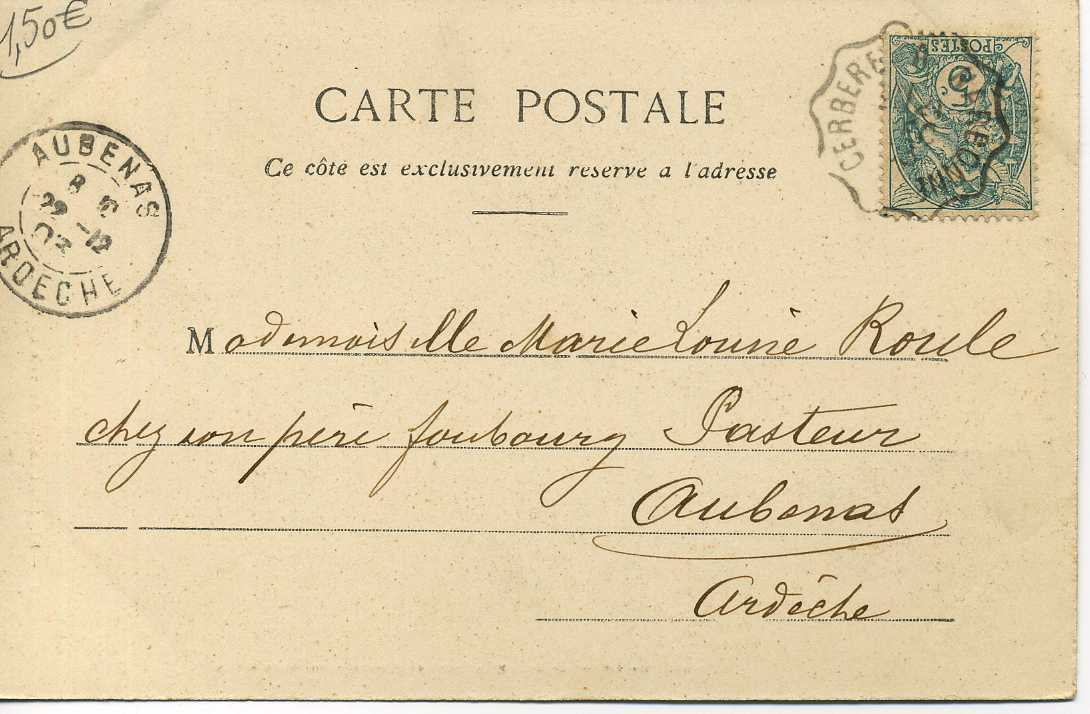 1,50€
CARTE POSTALE
Ce côté est exclusivement reserve a l'adresse
POSTES
5
CERBERE A NARBONNE
AUBENAS
8
22 -12
03
ARDECHE
Mademoiselle Marie Louise Roule
chez son père foubourg Pasteur
Aubenas
Ardèche